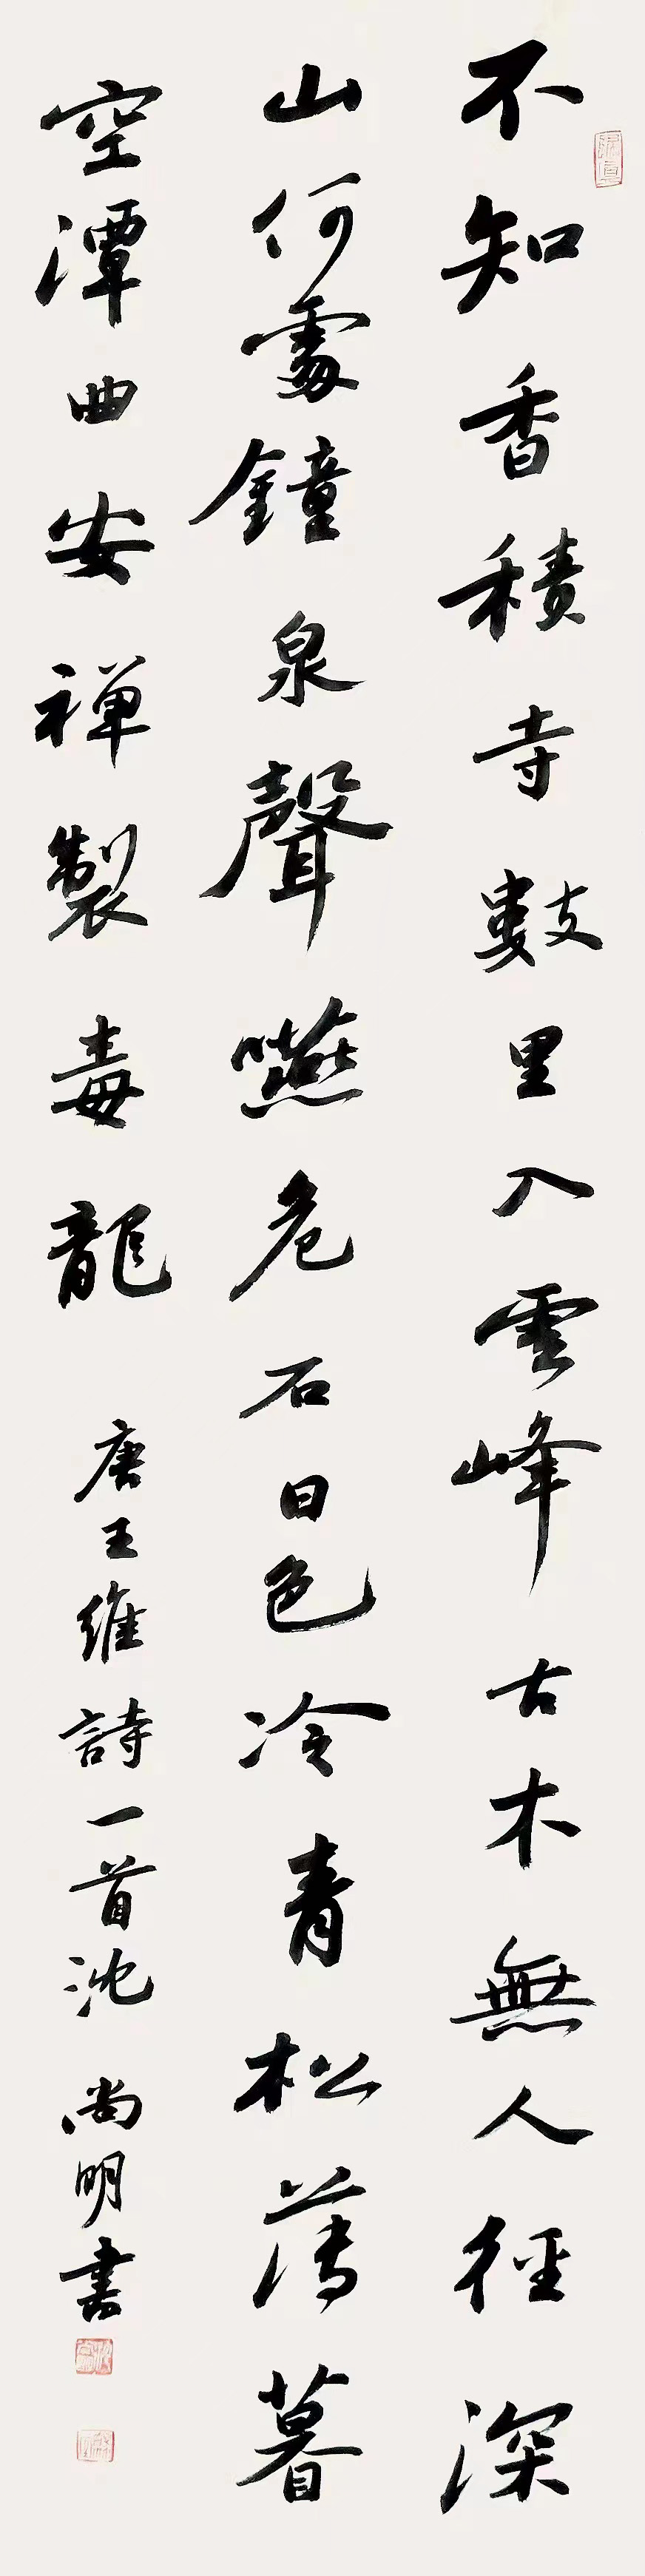 不知香積寺數里入雲峰古木無人徑深
山何處鐘泉聲嚥危石日色冷青松薄暮
空潭曲安禪製毒龍 唐王維詩一首沈尚明書